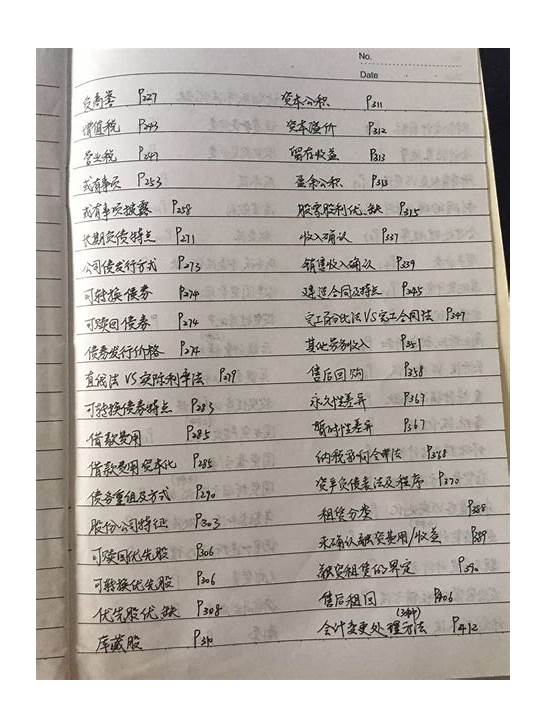 No.
Date
负商誉 P227
增值税 P243
营业税 P249
或有事项 P253
或有事项披露 P258
长期负债特点 P271
公司债发行方式 P273
可转换债券 P274
可赎回债券 P274
债券发行价格 P274
直线法 VS 实际利率法 P279
可转换债券特点 P283
借款费用 P285
借款费用资本化 P285
债务重组及方式 P290
股份公司特征 P303
可赎回优先股 P306
可转换优先股 P306
优先股优、缺 P308
库藏股 P310
资本公积 P311
资本溢价 P312
留存收益 P313
盈余公积 P313
股票股利优、缺 P315
收入确认 P337
销售收入确认 P339
建造合同及特点 P345
完工百分比法 VS 完工合同法 P347
其他劳务收入 P351
售后回购 P358
永久性差异 P367
暂时性差异 P367
纳税影响会计法 P368
资产负债表法及程序 P370
租赁分类 P388
未确认融资费用/收益 P389
融资租赁的界定 P390
售后租回 P406
会计变更处理方法 (3种) P412